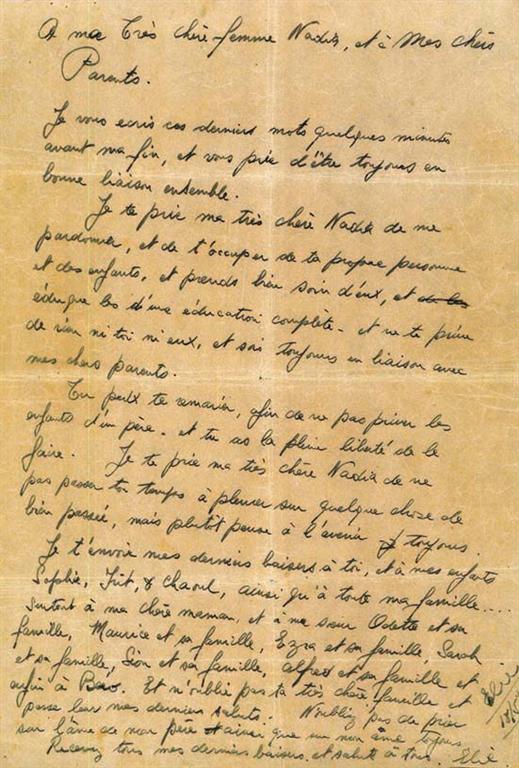 A ma très chère femme Nadia, et à mes chers
Parents.
Je vous ecris ces derniers mots quelques minutes
avant ma fin, et vous prie d'être toujours en
bonne liaison ensemble.
Je te prie ma très chère Nadia de me
pardonner, et de t'occuper de ta propre personne
et des enfants, et prends bien soin d'eux, et de les
éduque les d'une éducation complète - et ne te prive
de rien ni toi ni eux, et sois toujours en liaison avec
mes chers parents.
Tu peux te remarier, afin de ne pas priver les
enfants d'un père - et tu as la pleine liberté de le
faire. Je te prie ma très chère Nadia de ne
pas passer ton temps à pleurer sur quelque chose de
bien passée, mais plutôt pense à l'avenir toujours.
Je t'envoie mes derniers baisers à toi, et à mes enfants
Sophie, Irit, & Chaoul, ainsi qu'à toute ma famille....
Surtout à ma chère maman, et à ma sœur Odette et sa
famille, Maurice et sa famille, Ezra et sa famille, Sarah
et sa famille, Sion et sa famille, Alfred et sa famille et
enfin à . Et n'oublie pas ta très chère famille et
passe leur mes derniers saluts. N'oubliez pas de prier
sur l'âme de mon père ainsi que sur mon âme
Recevez tous mes derniers baisers et saluts à tous. Elie
Elie